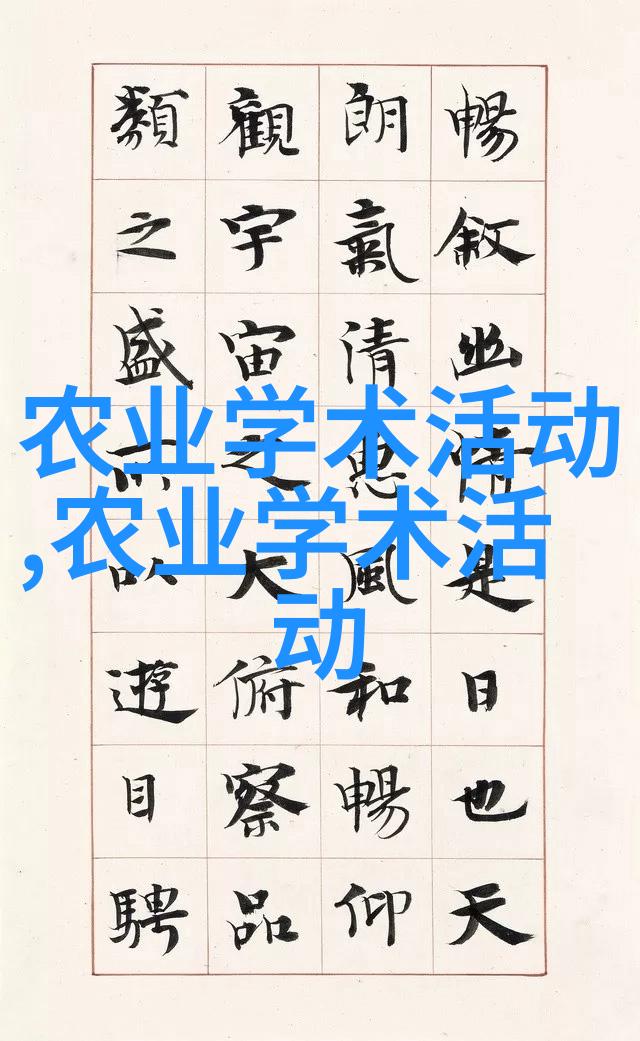 暢敘幽情是日也天
朗氣清惠風和暢仰
觀宇宙之大俯察品
類之盛所以遊目騁
农业学术活动
,农业学术活
动